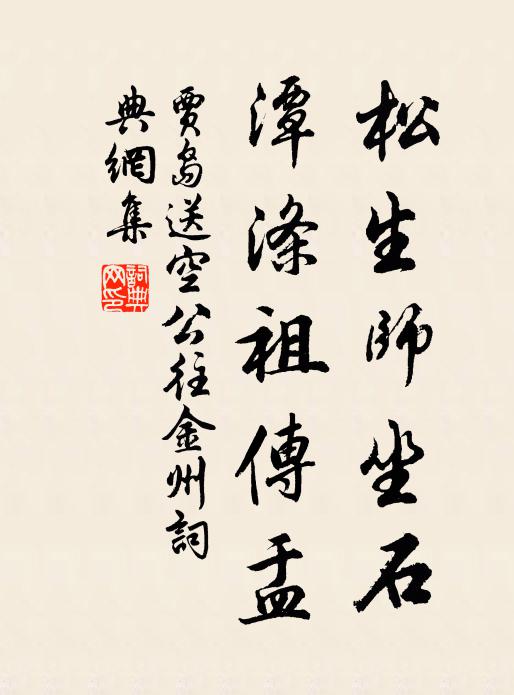 松生師坐石
潭滌祖傳盂
賈島送空公往金州詞
典網集
詞典網印